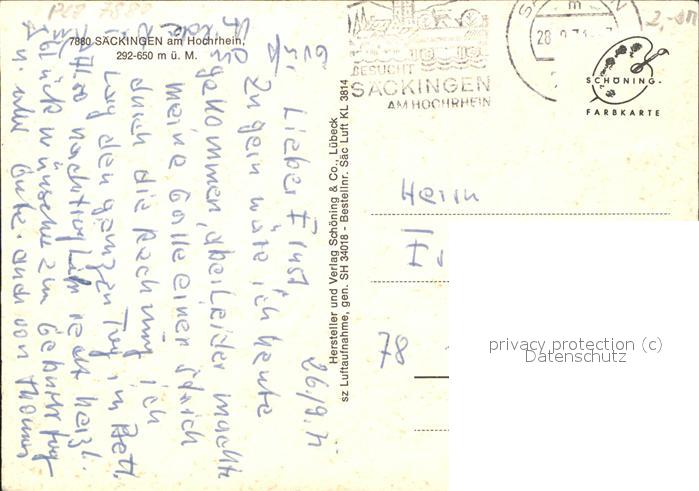 PLZ 7880
7880 SÄCKINGEN am Hochrhein,
292-650 m ü. M.
BESUCHT
SÄCKINGEN
AM HOCHRHEIN
28
2,-
SCHÖNING-
FARBKARTE
Hersteller und Verlag Schöning & Co., Lübeck
sz Luftaufnahme, gen. SH 34018 - Bestellnr. Säc Luft KL 3814
26/9.
Lieber Ernst,
Zu gern wäre ich heute
gekommen, aber leider machte
meine Galle einen Strich
durch die Rechnung, ich
lag den ganzen Tag im Bett.
Also nachträglich recht herzl.
Glückwünsche zum Geburtstag
u. alles Gute. auch von
Herrn
78
privacy protection (c)
Datenschutz